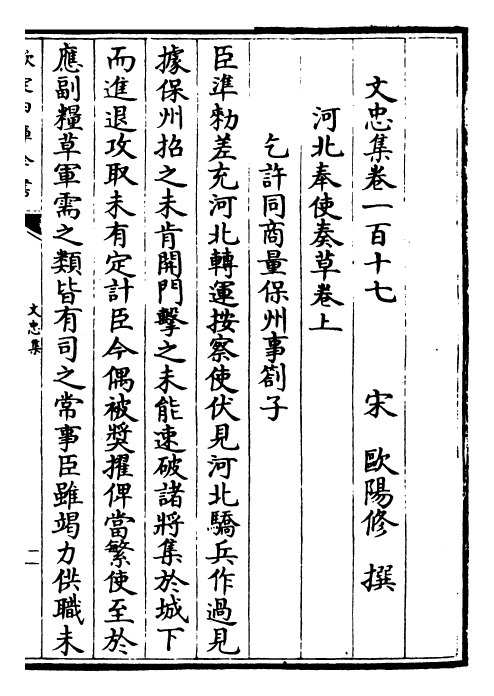 文忠集卷一百十七　宋　歐陽修　撰
河北奉使奏草卷上
乞許同商量保州事劄子
臣準勑差充河北轉運按察使伏見河北驕兵作過見
據保州招之未肯開門擊之未能速破諸將集於城下
而進退攻取未有定計臣今偶被奬擢俾當繁使至於
應副糧草軍需之類皆有司之常事臣雖竭力供職未
欽定四庫全書
文忠集
二